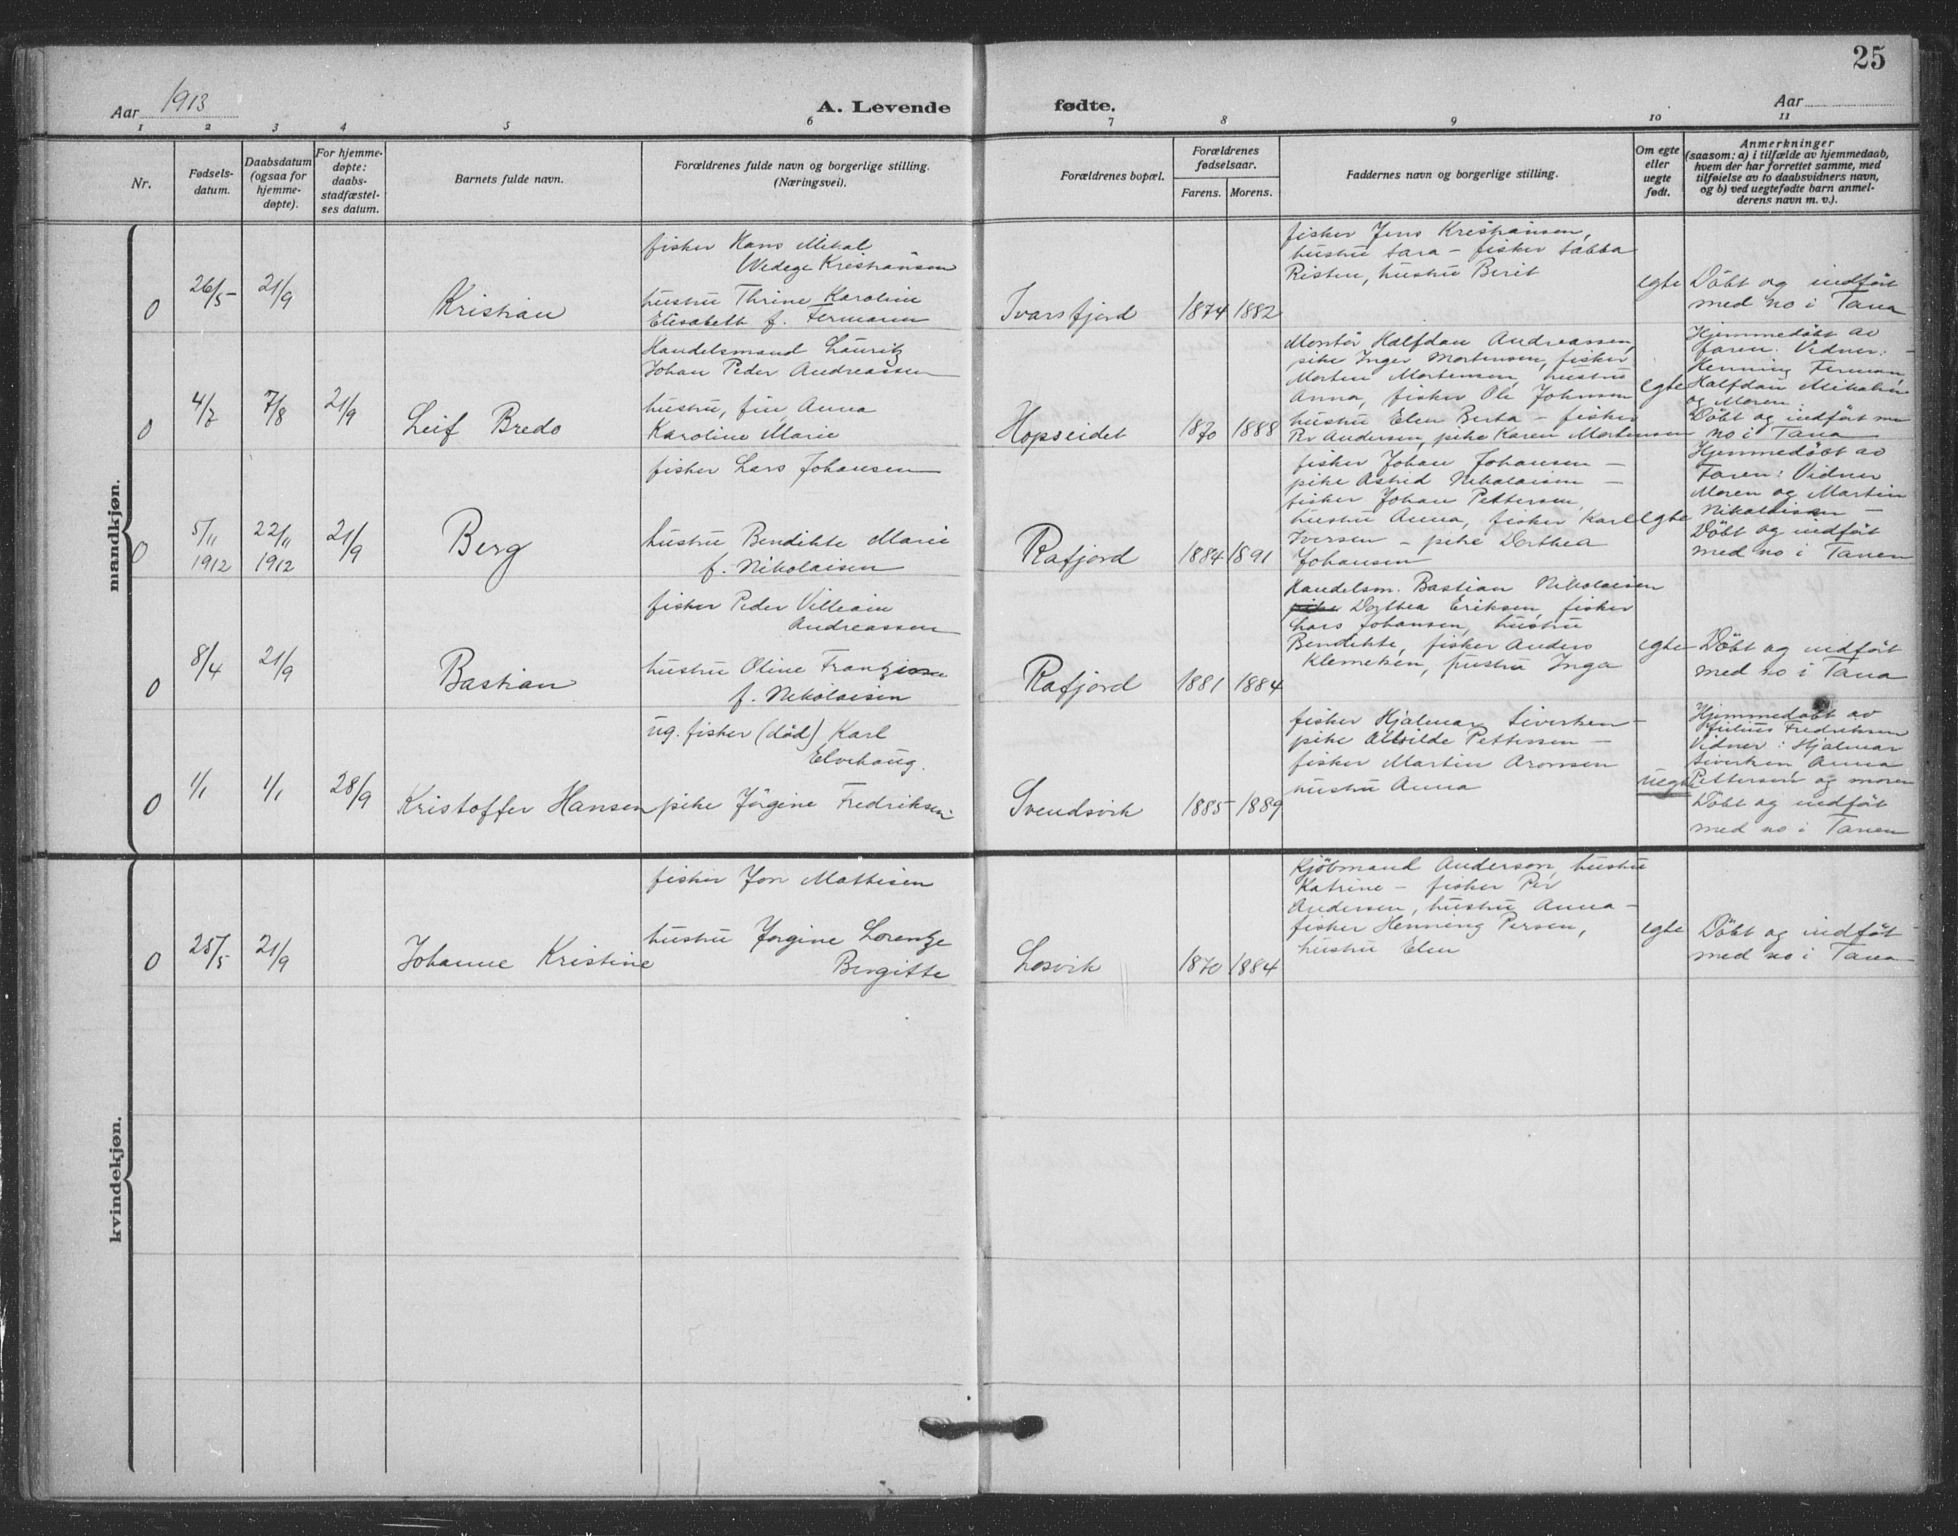 25
Aar 1913
A. Levende fødte.
Aar
1 2 3 4 5 6 7 8 9 10 11
Nr.
Fødsels-
datum.
Daabsdatum
(ogsaa for
hjemme-
døpte).
For hjemme-
døpte:
daabs-
stadfæstel-
ses datum.
Barnets fulde navn.
Forældrenes fulde navn og borgerlige stilling.
(Næringsvei).
Forældrenes bopæl.
Forældrenes
fødselsaar.
Farens. Morens.
Faddernes navn og borgerlige stilling.
Om egte
eller
uegte
født.
Anmerkninger
(saasom: a) i tilfælde av hjemmedaab,
hvem der har forrettet samme, med
tilføielse av to daabsvidners navn,
og b) ved uegtefødte barn anmel-
derens navn m. v.).
mandkjøn.
0
26/5
21/9
Kristian
fisker Hans Mikal
Wedege Kristiansen
hustru Thrine Karoline
Elisabeth f. Fermann
Ivarsfjord
1874 1882
fisker Jens Kristiansen,
hustru Sara – fisker Sabba
Risten, hustru Berit
egte
Döbt og indført
med no i Tana
0
4/7
7/8
21/9
Leif Bredo
Handelsmand Lauritz
Johan Peder Andreassen
hustru, fin Anna
Karoline Marie
Hopseidet
1870 1888
Montør Halfdan Andreassen,
pike Inger Mortensen, fisker
Morten Mortensen, hustru
Anna, fisker Ole Johnsen
hustru Elen Berta – fisker
Per Andersen, pike Karen Mortensen
egte
Hjemmedöbt av
faren: Vidner:
Henning Ferman,
Halfdan Mikalsen
og Moren:
Döbt og indført
no i Tana
0
5/11
1912
22/11
1912
21/9
Berg
fisker Lars Johansen
hustru Bendikte Marie
f. Nikolaisen
Rafjord
1884 1891
fisker Johan Johansen –
pike Astrid Nikolaisen –
fisker Johan Pettersen,
hustru Anna, fisker Karl
Iversen – pike Dorthea
Johansen
egte
Hjemmedöbt av
Faren: Vidner
Moren og Martin
Nikolaisen –
Döbt og indført
med no i Tanen
0
8/4
21/9
Bastian
fisker Peder Villiam
Andreassen
hustru Oline
f. Nikolaisen
Rafjord
1881 1884
Handelsm. Bastian Nikolaisen
pike Dorthea Eriksen, fisker
Lars Johansen, hustru
Bendikte, fisker Anders
Klemetsen, hustru Inga
egte
Döbt og indført
med no i Tana
0
1/1
1/1
28/9
Kristoffer Hansen
ug. fisker (död) Karl
Elvehaug.
pike Jörgine Fredriksen
Svendsvik
1885 1889
fisker Hjalmar Sivertsen –
pike Pettersen –
fisker Martin Aronsen
hustru Anna
uegte
Hjemmedöbt av
Julius Fredriksen
Vidner: Hjalmar
Sivertsen Anna
Pettersen og moren
Döbt og indført
med no i Tanen
kvindekjøn.
0
25/5
21/9
Johanne Kristine
fisker Jon Mattisen
hustru Jørgine Lorentze
Bergitte
Losvik
1870 1884
Kjöbmand Anderson, hustru
Katrine – fisker Per
Andersen, hustru Anna –
fisker Henning Persen,
hustru Elen
egte
Döbt og indført
med no i Tana